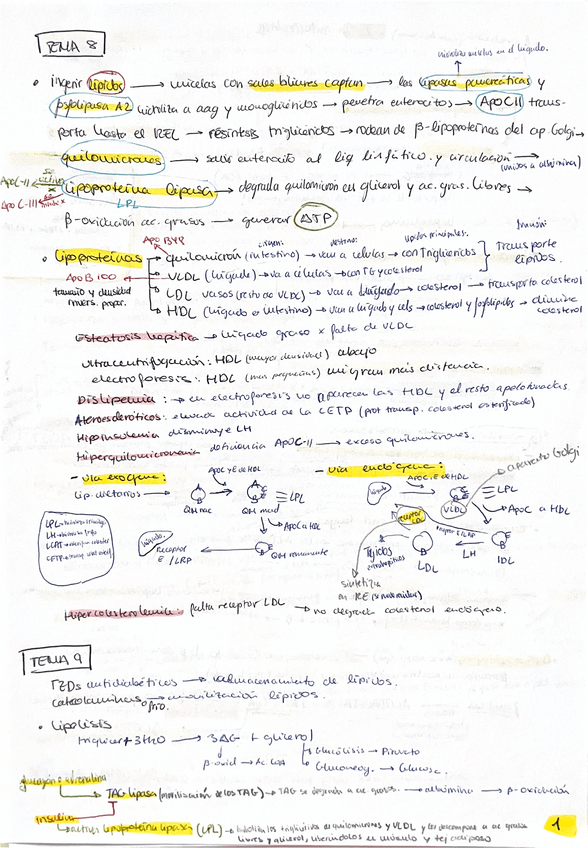 TEMA 8
• ingerir lípidos → micelas con sales biliares captan → las lipasas pancreáticas y
fosfolipasa A2 hidroliza a aag y monoglicéridos → penetra enterocitos → ApoCII trans-
porta hasta el REL → resíntesis triglicéridos → rodean de β-lipoproteínas del ap Golgi →
quilomicrones → sale enterocito al liq linfático y circulación → (unidos a albúmina)
ApoC-II
Lipoproteína lipasa → degrada quilomicrón en glicerol y ac. gras. libres →
ApoC-III
LPL
β-oxidación ac. grasos → generar ATP
• Lipoproteínas
quilomicrón (intestino) → van a células → con Trigliceridos
VLDL (hígado) → va a células → con TG y colesterol
LDL vasos (resto de VLDL) → van a hígado → colesterol → transporta colesterol
HDL (hígado e intestino) → van a hígado y cels → colesterol y fosfolípidos → elimina colesterol
Transporte lípidos.
ApoB100
tamaño y densidad
invers. propor.
Esteatosis hepática → hígado graso x falta de VLDL
Ultracentrifugación: HDL (mayor densidad) abajo
electroforesis: HDL (mas pequeñas) migran más distancia.
Dislipemia: → en electroforesis no aparecen las HDL y el resto apelotonadas
Ateroescleróticos: elevada actividad de la CETP (prot transp. colesterol esterificado)
Hipoinsulemia disminuye LH
Hiperquilomicronemia deficiencia ApoC-II → exceso quilomicrones.
- via exógena:
lip. dietarios →
QM nac
ApoC y E de HDL
QM mad
LPL
ApoC a HDL
QM remanente
Receptor
E / LRP
hígado
- via endógena:
aparato Golgi
ApoC y E de HDL
hígado
VLDL
LPL
ApoC a HDL
receptor LDL
LDL
LH
IDL
Tejidos
extrahepáticos
sintetiza
en RE
Hipercolesterolemia: falta receptor LDL → no degrada colesterol endógeno.
TEMA 9
TZDs antidiabéticos → almacenamiento de lípidos.
Catecolaminas → movilización lípidos.
frío.
• Lipolisis
Triglicer + 3H2O → 3AG + glicerol
β-oxid → Ac CoA
Glucólisis → Piruvato
Gluconeog. → Glucosa.
glucagón o adrenalina
TAG lipasa (movilización de los TAG) → TAG se degrada a ac grasos. → albúmina → β-oxidación
Insulina
activa lipoproteína lipasa (LPL) → hidroliza los triglicéridos de quilomicrones y VLDL y los descompone a ac grasos
libres y glicerol, liberándolos en músculo y tej adiposo
1